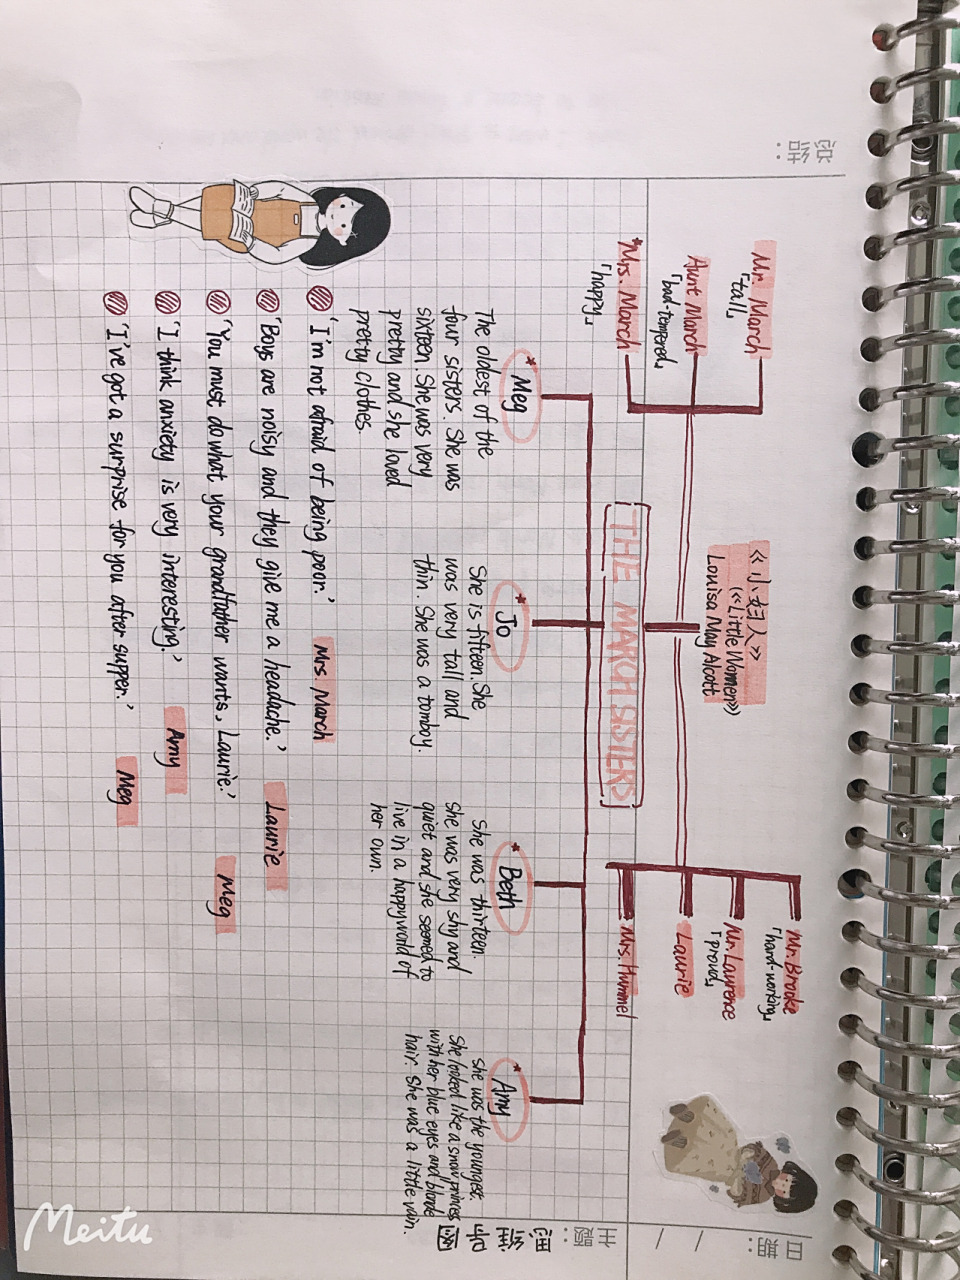 日期: / /
主题: 思维导图
《小妇人》
(《Little Women》)
Louisa May Alcott
Mr. March
「tall」
Aunt March
「bad-tempered」
*Mrs. March
「happy」
Mr. Brooke
「hard-working」
Mr. Laurence
「proud」
Laurie
Mrs. Hummel
THE MARCH SISTERS
*Meg
The oldest of the
four sisters. She was
sixteen. She was very
pretty and she loved
pretty clothes.
*Jo
She is fifteen. She
was very tall and
thin. She was a tomboy.
*Beth
She was thirteen.
She was very shy and
quiet and she seemed to
live in a happy world of
her own.
*Amy
She was the youngest.
She looked like a snow princess
with her blue eyes and blonde
hair. She was a little vain.
'I'm not afraid of being poor.' Mrs. March
'Boys are noisy and they give me a headache.' Laurie
'You must do what your grandfather wants, Laurie.' Meg
'I think anxiety is very interesting.' Amy
'I've got a surprise for you after supper.' Meg
总结:
Meitu